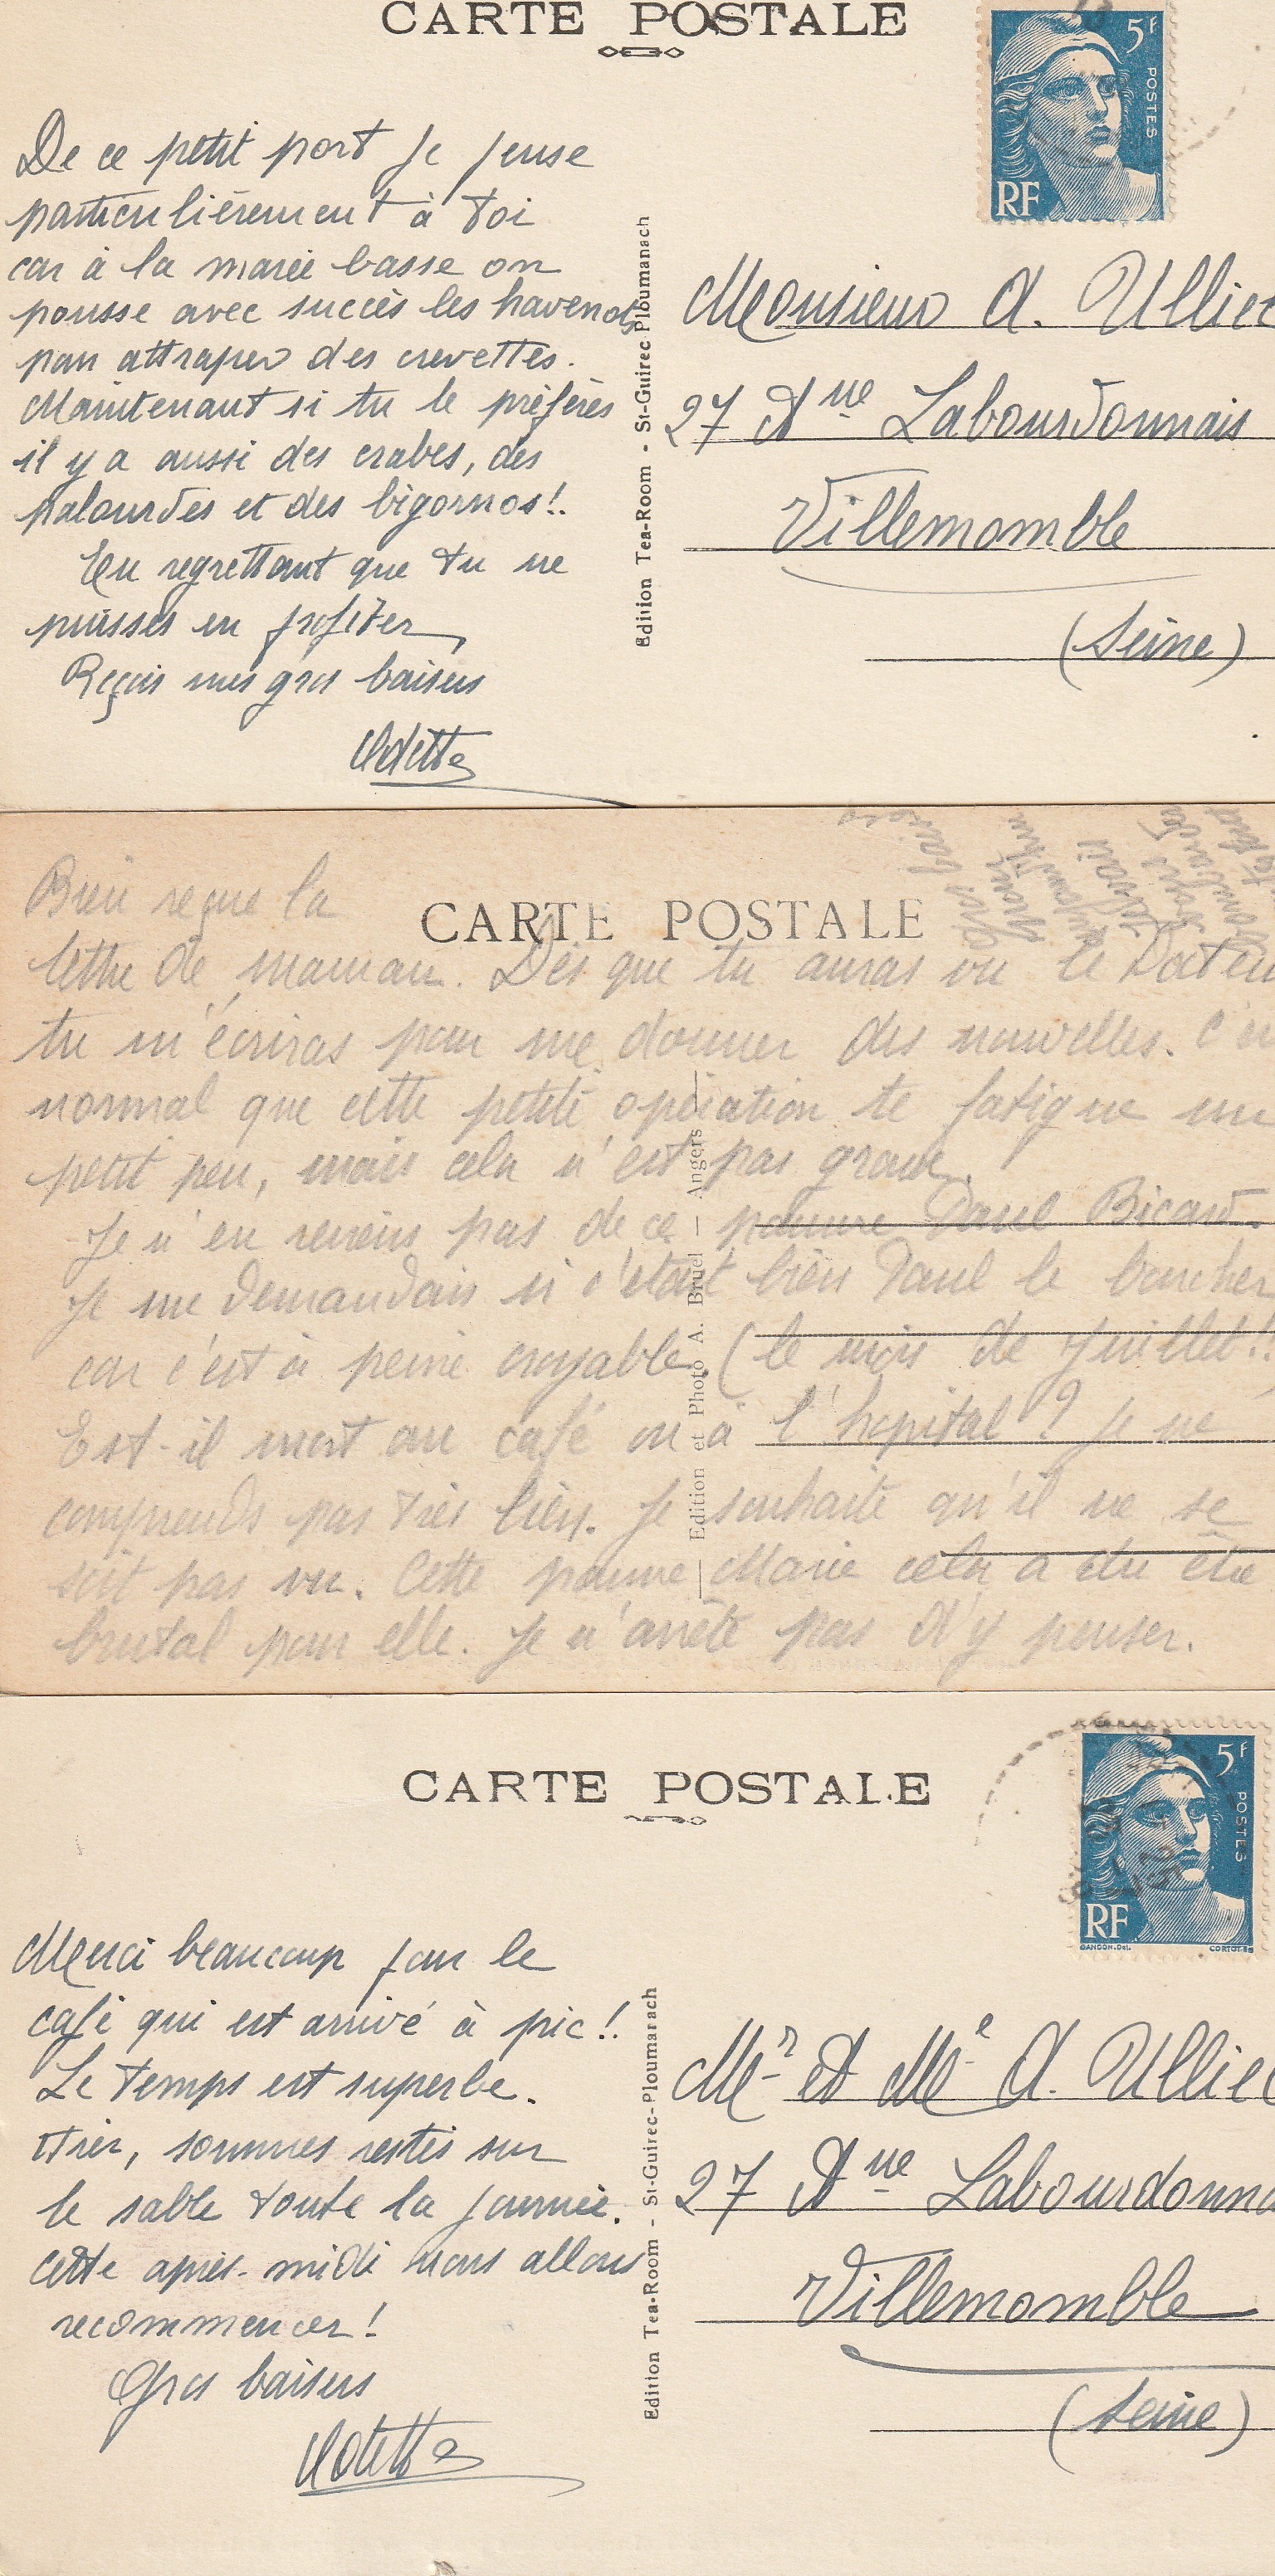 CARTE POSTALE
5f
POSTES
RF
De ce petit port je pense
particulièrement à toi
car à la marée basse on
pousse avec succès les havenots
pour attraper des crevettes.
Maintenant si tu le préfères
il y a aussi des crabes, des
palourdes et des bigornos!.
En regrettant que tu ne
puisses en profiter,
Reçois mes gros baisers
Odette
Edition Tea-Room - St-Guirec Ploumanach
Monsieur A. Ulliec
27 Ave Labourdonnais
Villemomble
(Seine)
Bien reçue la
CARTE POSTALE
lettre de maman. Dès que tu auras vu le Docteur
tu m'écriras pour me donner des nouvelles. C'est
normal que cette petite opération te fatigue un
petit peu, mais cela n'est pas grave.
Je n'en reviens pas de ce pauvre Paul Bicard.
Je me demandais si c'était bien Paul le boucher
car c'est à peine croyable. (le mois de Juillet!!
Est-il mort au café ou à l'hopital? Je ne
comprends pas très bien. Je souhaite qu'il ne se
soit pas vu. Cette pauvre Marie cela a du être
brutal pour elle. Je n'arrête pas d'y penser.
Gros baisers
Edition et Photo A. Bruel — Angers
CARTE POSTALE
5f
POSTES
RF
GANDON.Del.
Merci beaucoup pour le
café qui est arrivé à pic!.
Le temps est superbe.
Hier, sommes restés sur
le sable toute la journée.
Cette après-midi nous allons
recommencer!
Gros baisers
Odette
Edition Tea-Room - St-Guirec-Ploumarach
Mr et Me A. Ulliec
27 Ave Labourdonna
Villemomble
(Seine)